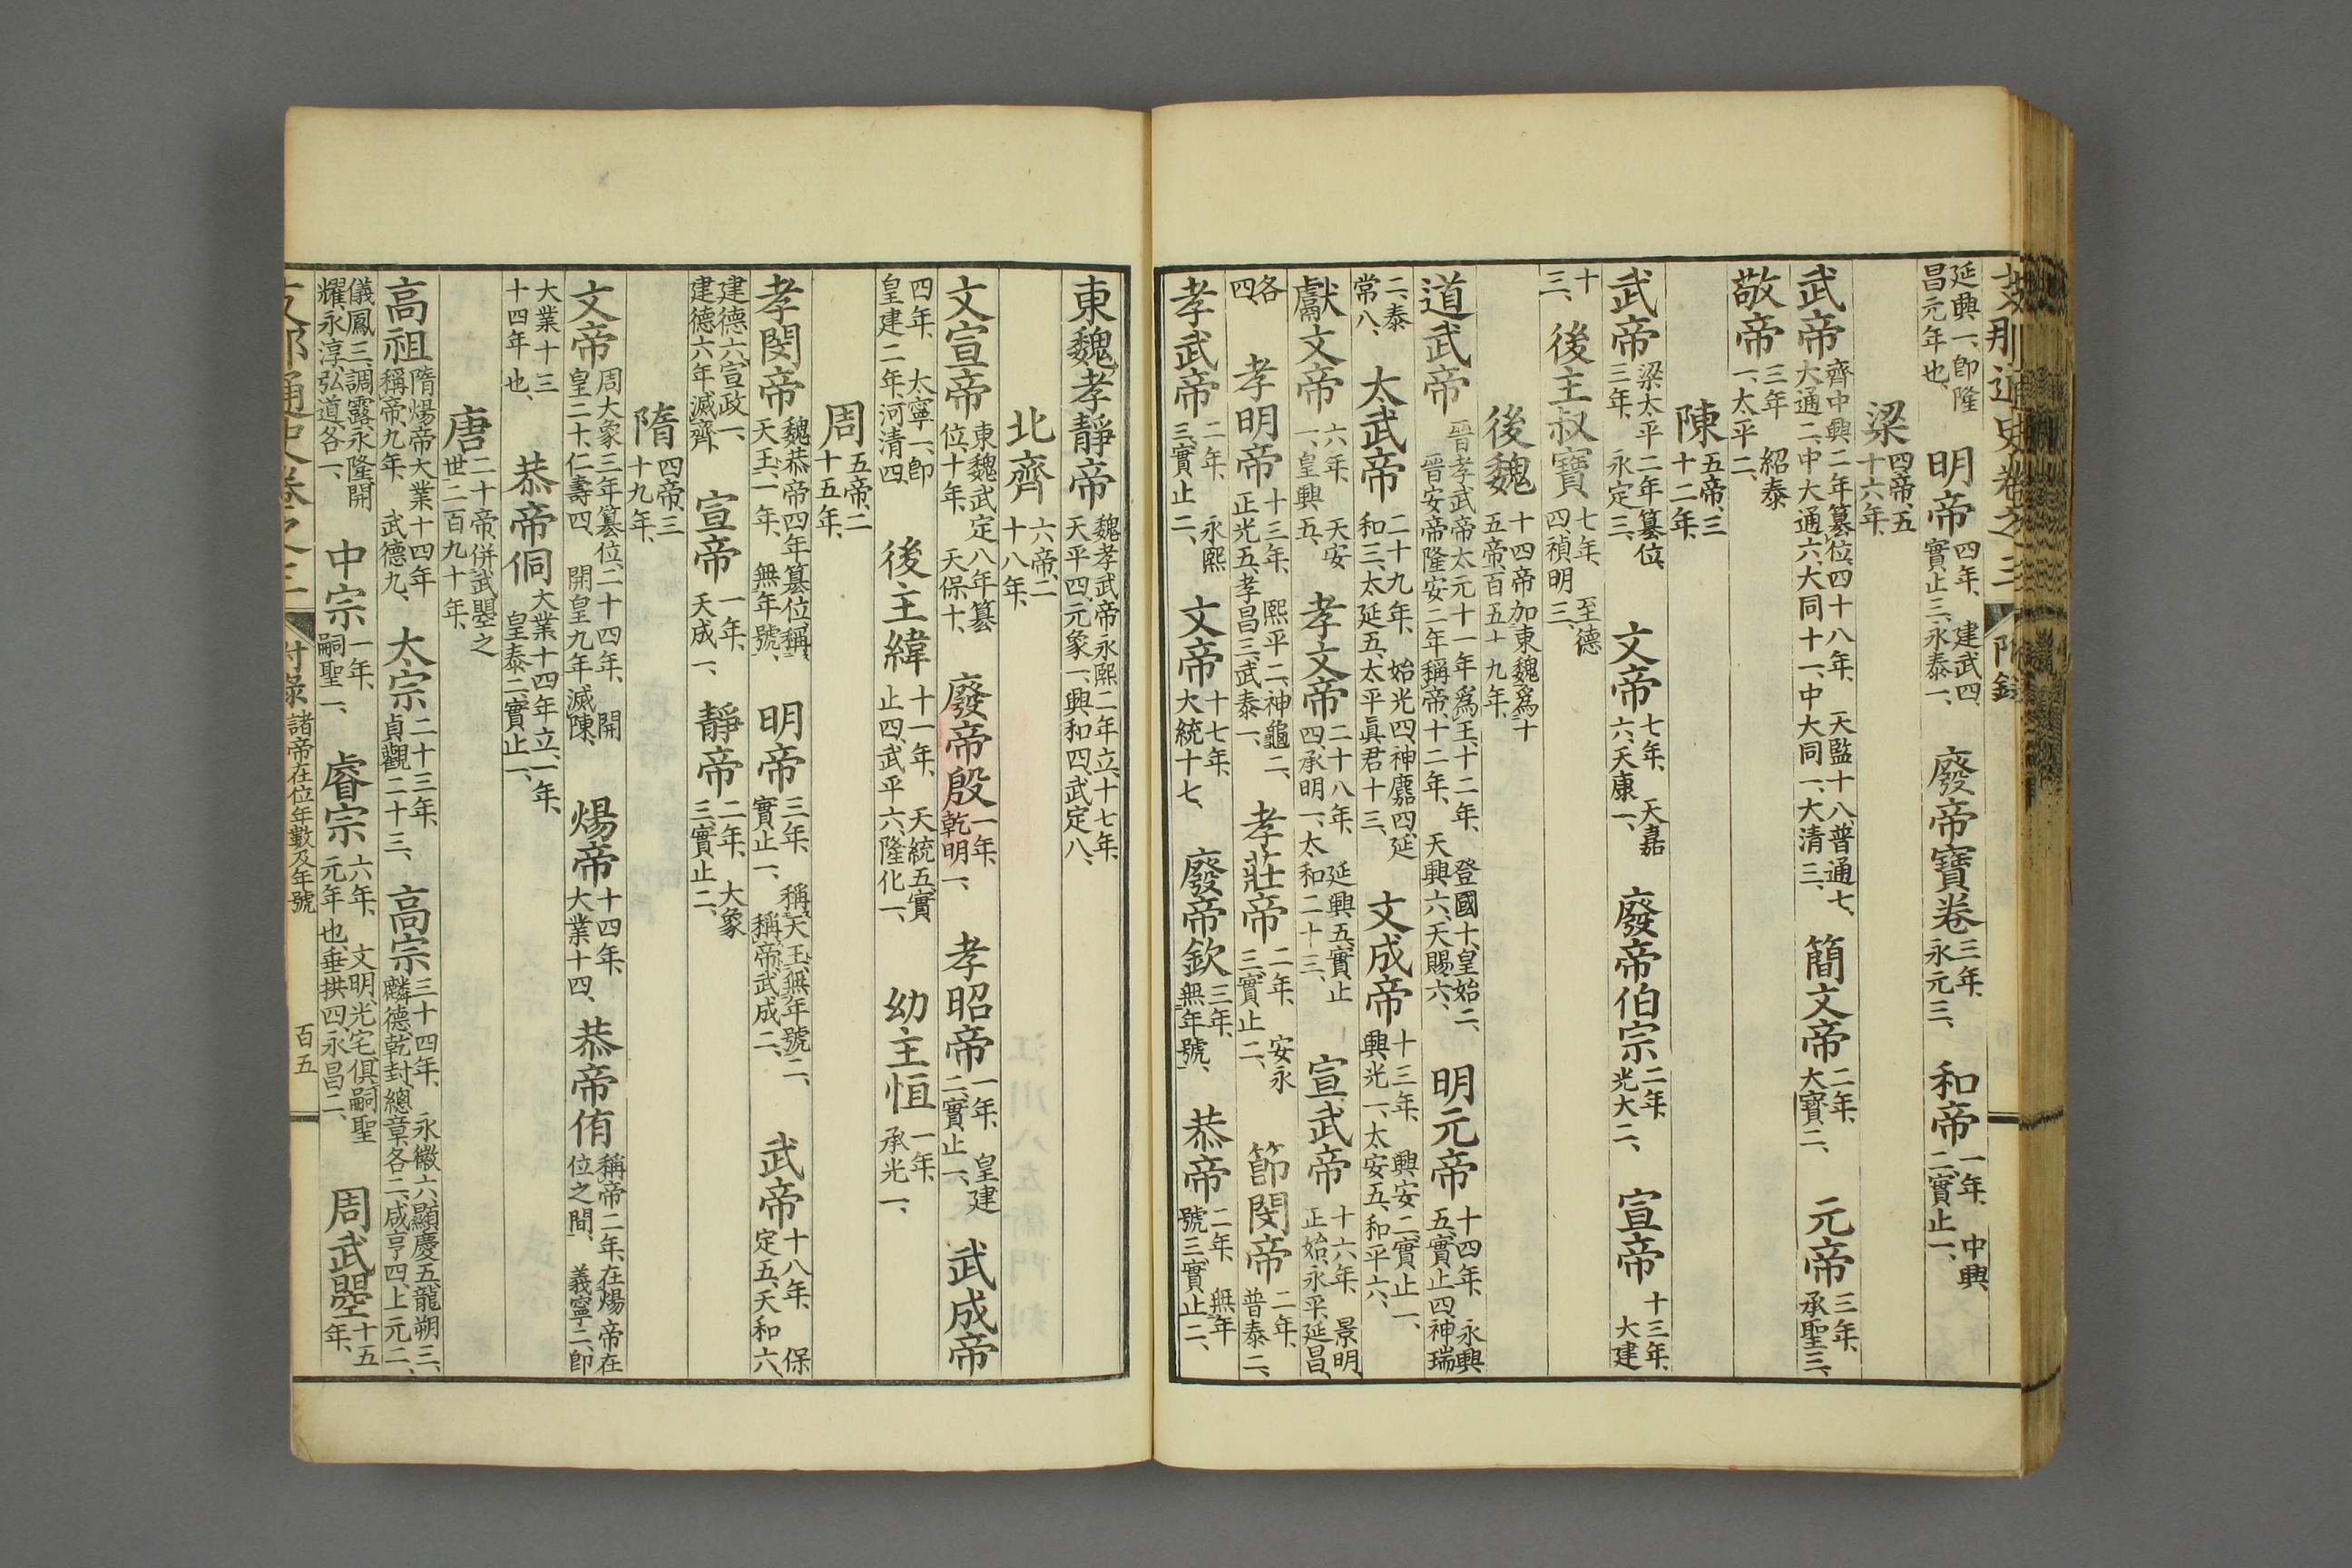 支那通史卷之三 附錄
延興一、卽隆
昌元年也、
明帝 四年、建武四、
實止三、永泰一、
廢帝寶卷 三年、
永元三、
和帝 一年、中興
二、實止一、
梁 四帝、五
十六年、
武帝 齊中興二年篡位、四十八年、天監十八、普通七、
大通二、中大通六、大同十一、中大同一、大清三、
簡文帝 二年、
大寶二、
元帝 三年、
承聖三、
敬帝 三年 紹泰
一、太平二、
陳 五帝、三
十二年、
武帝 梁太平二年篡位、
三年、永定三、
文帝 七年、天嘉
六、天康一、
廢帝伯宗 二年、
光大二、
宣帝 十三年、
大建
十
三、
後主叔寶 七年、至德
四、禎明三、
後魏 十四帝加東魏爲十
五帝、百五十九年、
道武帝 晉孝武帝太元十一年爲王、十二年、登國十、皇始二、
晉安帝隆安二年稱帝、十二年、天興六、天賜六、
明元帝 十四年、永興
五、實止四、神瑞
二、泰
常八、
太武帝 二十九年、始光四、神䴥四、延
和三、太延五、太平眞君十三、
文成帝 十三年、興安二、實止一、
興光一、太安五、和平六、
獻文帝 六年、天安
一、皇興五、
孝文帝 二十八年、延興五、實止
四、承明一、太和二十三、
宣武帝 十六年、景明、
正始、永平、延昌、
各
四、
孝明帝 十三年、熙平二、神龜二、
正光五、孝昌三、武泰一、
孝莊帝 二年、安永
三、實止二、
節閔帝 二年、
普泰二、
孝武帝 二年、永熙
三、實止二、
文帝 十七年、
大統十七、
廢帝欽 三年、
無年號、
恭帝 二年、無年
號三、實止二、
東魏孝靜帝 魏孝武帝永熙二年立、十七年、
天平四、元象一、興和四、武定八、
北齊 六帝、二
十八年、
文宣帝 東魏武定八年篡
位、十年、天保十、
廢帝殷 一年、
乾明一、
孝昭帝 一年、皇建
二、實止一、
武成帝
四年、太寧一、卽
皇建二年、河清四、
後主緯 十一年、天統五、實
止四、武平六、隆化一、
幼主恒 一年、
承光一、
周 五帝、二
十五年、
孝閔帝 魏恭帝四年篡位稱
天王、一年、無年號、
明帝 三年、稱天王、無年號二、
實止一、稱帝、武成二、
武帝 十八年、保
定五、天和六、
建德六、宣政一、
建德六年滅齊、
宣帝 一年、
天成一、
靜帝 二年、大象
三、實止二、
隋 四帝、三
十九年、
文帝 周大象三年篡位、二十四年、開
皇二十、仁壽四、開皇九年滅陳、
煬帝 十四年、
大業十四、
恭帝侑 稱帝二年、在煬帝在
位之間、義寧二、卽
大業十三
十四年也、
恭帝侗 大業十四年立、一年、
皇泰二、實止一、
唐 二十帝、倂武曌之
世、二百九十年、
高祖 隋煬帝大業十四年
稱帝、九年、武德九、
太宗 二十三年、
貞觀二十三、
高宗 三十四年、永徽六、顯慶五、龍朔三、
麟德、乾封、總章各二、咸亨四、上元二、
儀鳳三、調露、永隆、開
耀、永淳、弘道各一、
中宗 一年、
嗣聖一、
睿宗 六年、文明、光宅俱嗣聖
元年也、垂拱四、永昌二、
周武曌 十五
年、
支那通史卷之三 附錄 諸帝在位年數及年號 百五